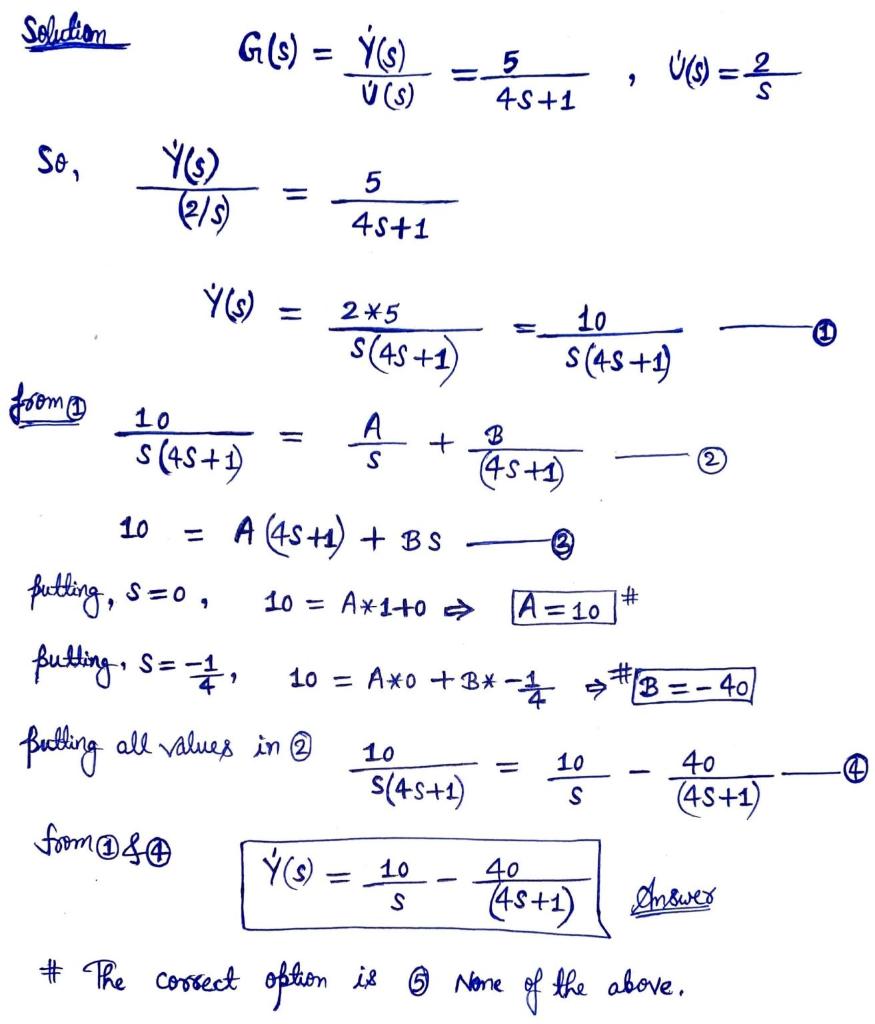 Solution
G(s) = Y'(s)/U'(s) = 5/(4s+1) , U'(s) = 2/s
So, Y'(s)/(2/s) = 5/(4s+1)
Y'(s) = 2*5/(s(4s+1)) = 10/(s(4s+1)) —— ①
from ① 10/(s(4s+1)) = A/s + B/(4s+1) —— ②
10 = A(4s+1) + BS —— ③
putting, s=0, 10 = A*1+0 ⇒ A=10 #
putting, s=-1/4, 10 = A*0 + B*-1/4 ⇒ # B=-40
putting all values in ② 10/(s(4s+1)) = 10/s - 40/(4s+1) —— ④
from ① & ④ Y'(s) = 10/s - 40/(4s+1) Answer
# The correct option is ⑤ None of the above.